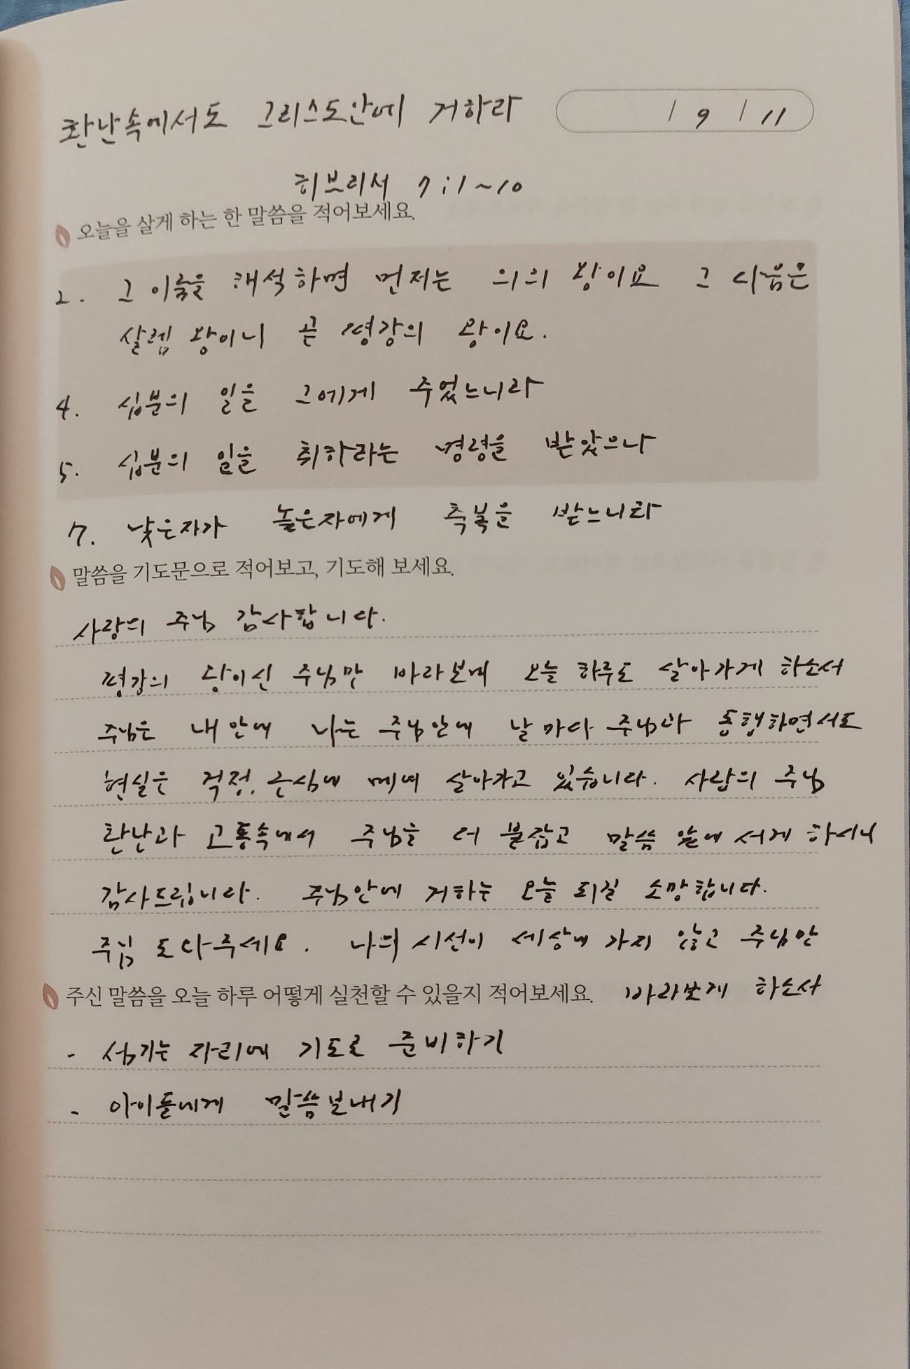 환난속에서도 그리스도안에 거하라
/ 9 / 11
히브리서 7:1~10
오늘을 살게 하는 한 말씀을 적어보세요.
2. 그 이름을 해석하면 먼저는 의의 왕이요 그 다음은
살렘 왕이니 곧 평강의 왕이요.
4. 십분의 일을 그에게 주었느니라
5. 십분의 일을 취하라는 명령을 받았으나
7. 낮은자가 높은자에게 축복을 받느니라
말씀을 기도문으로 적어보고, 기도해 보세요.
사랑의 주님 감사합니다.
평강의 왕이신 주님만 바라보며 오늘 하루도 살아가게 하소서
주님은 내 안에 나는 주님안에 날마다 주님과 동행하면서도
현실은 걱정, 근심에 메여 살아가고 있습니다. 사랑의 주님
환난과 고통속에서 주님을 더 붙잡고 말씀 앞에 서게 하시니
감사드립니다. 주님안에 거하는 오늘 되길 소망합니다.
주님 도와주세요. 나의 시선이 세상에 가지 않고 주님만
바라보게 하소서
주신 말씀을 오늘 하루 어떻게 실천할 수 있을지 적어보세요.
- 섬기는 자리에 기도로 준비하기
- 아이들에게 말씀보내기